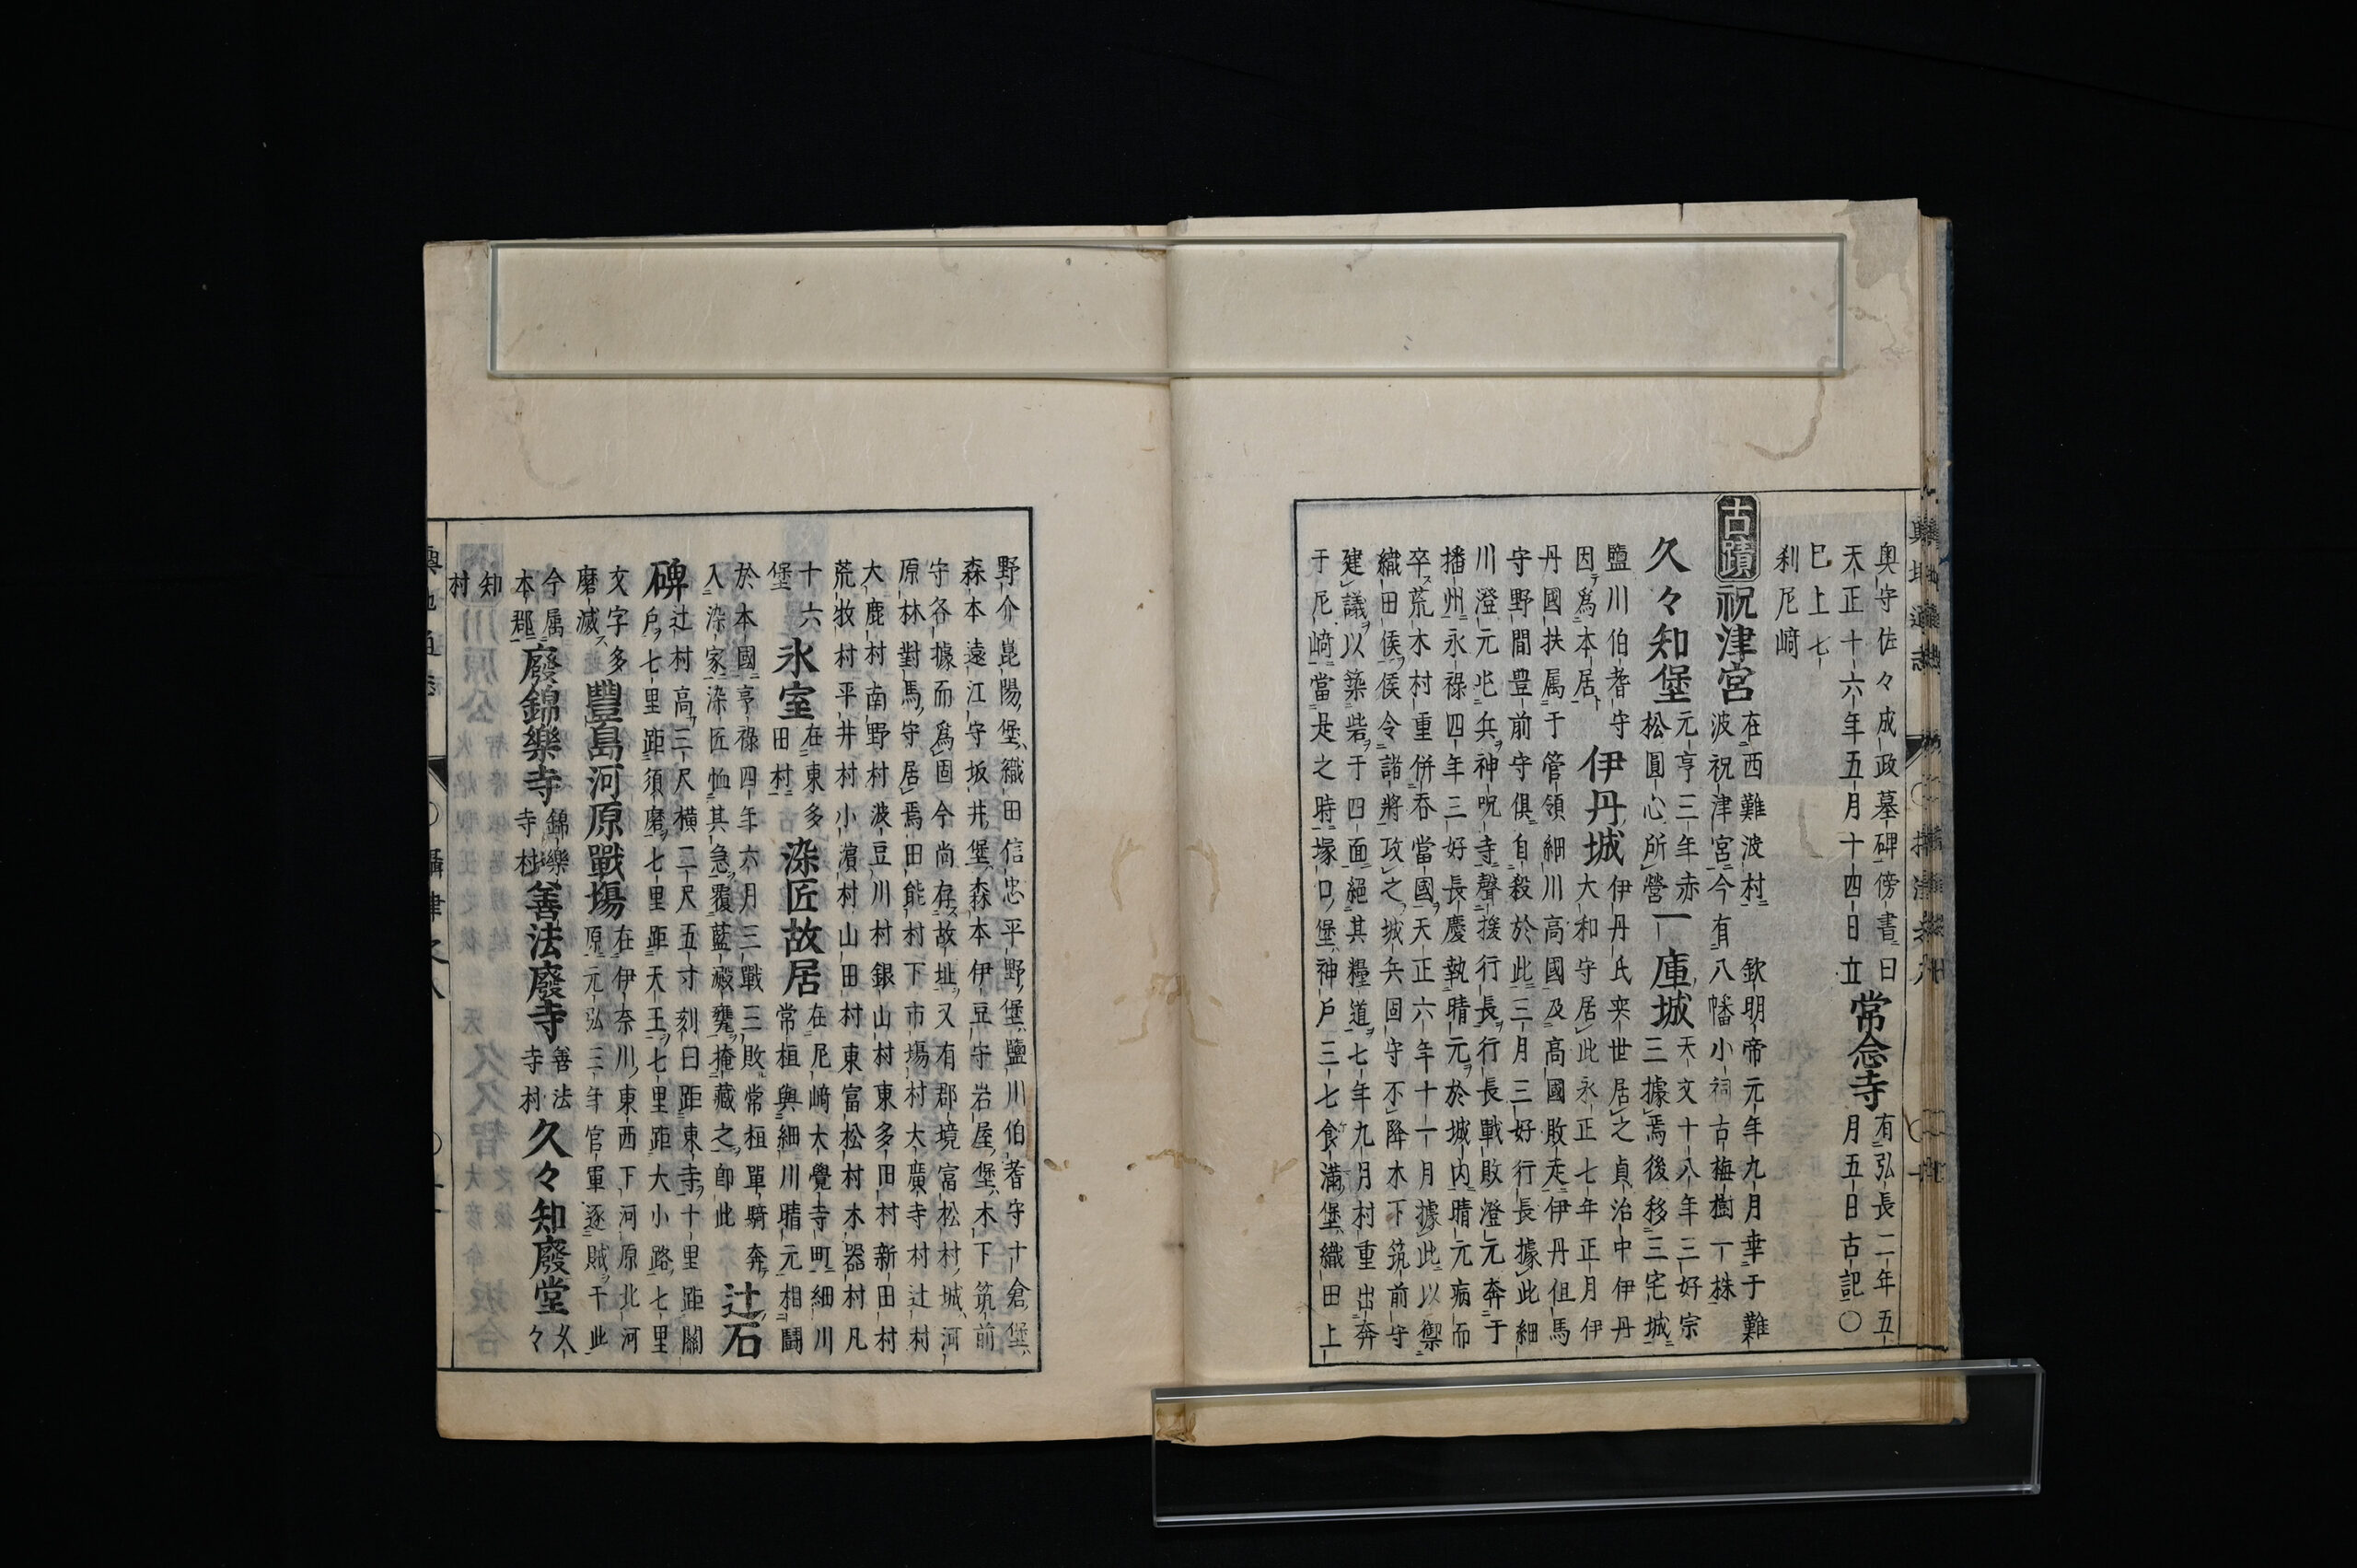 奥守佐々成政墓碑傍書曰
天正十六年五月十四日立
常念寺
有弘長二年五
月五日古記〇
已上七
刹尼﨑
古蹟
祝津宮
在西難波村　欽明帝元年九月幸于難
波祝津宮今有八幡小祠古梅樹一株
久々知堡
元亨三年赤
松圓心所營
一庫城
天文十八年三好宗
三據焉後移三宅城
鹽川伯耆守
因爲本居
伊丹城
伊丹氏来世居之貞治中伊丹
大和守居此永正七年正月伊
丹國扶属于管領細川高國及高國敗走伊丹但馬
守野間豊前守俱自殺於此三月三好行長據此細
川澄元出兵神呪寺聲援行長行長戰敗澄元奔于
播州永禄四年三好長慶執晴元於城内晴元病而
卒荒木村重併呑當國天正六年十一月據此以禦
織田侯侯令諸將攻之城兵固守不降木下筑前守
建議以築砦于四面絕其糧道七年九月村重出奔
于尼﨑當是之時塚口堡神戶三七食満堡織田上
野介崑陽堡織田信忠平野堡鹽川伯耆守十倉堡
森本遠江守坂井堡森本伊豆守岩屋堡木下筑前
守各據而爲固今尚存故址又有郡境富松村城河
原林對馬守居焉田能村下市塲村大廣寺村辻村
大鹿村南野村波豆川村銀山村東多田村新田村
荒牧村平井村小濵村山田村東富松村木器村凡
十六
堡
氷室
在東多
田村
染匠故居
在尼﨑大覺寺町細川
常桓與細川晴元相鬪
於本國享禄四年六月三戰三敗常桓單騎奔
入染家染匠恤其急覆藍甕掩藏之卽此
辻石
碑
辻村高三尺横二尺五寸刻曰距東寺十里距關
戶七里距須磨七里距天王七里距大小路七里
文字多
磨滅
豐島河原戰塲
在伊奈川東西下河原北河
原元弘三年官軍逐賊于此
今属
本郡
廢錦樂寺
錦樂
寺村
善法廢寺
善法
寺村
久々知廢堂
久
々
知
村